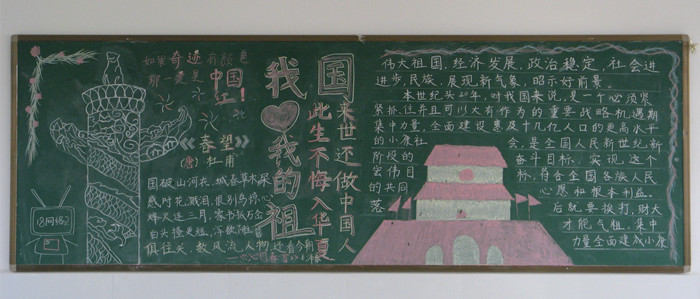 如果奇迹有颜色
那一定是
中国
红!
《春望》
(唐)杜甫
国破山河在,城春草木深
感时花溅泪,恨别鸟惊心
烽火连三月,家书抵万金
白头搔更短,浑欲
俱往矣,数风流人物,还看今朝
我❤我的祖
国
此生不悔入华夏
来世还做中国人
伟大祖国,经济发展,政治稳定,社会进
进步,民族,展现新气象,昭示好前景。
本世纪头20年,对我国来说,是一个必须紧
紧抓住并且可以大有作为的重要战略机遇期
集中力量,全面建设惠及十几亿人口的更高水平
的小康社会,是全国人民新世纪新
阶段的奋斗目标。实现这个
宏伟目标,符合全国各族人民
的共同心愿和根本利益。
落后就要挨打,财大
才能气粗,集中
力量全面建成小康